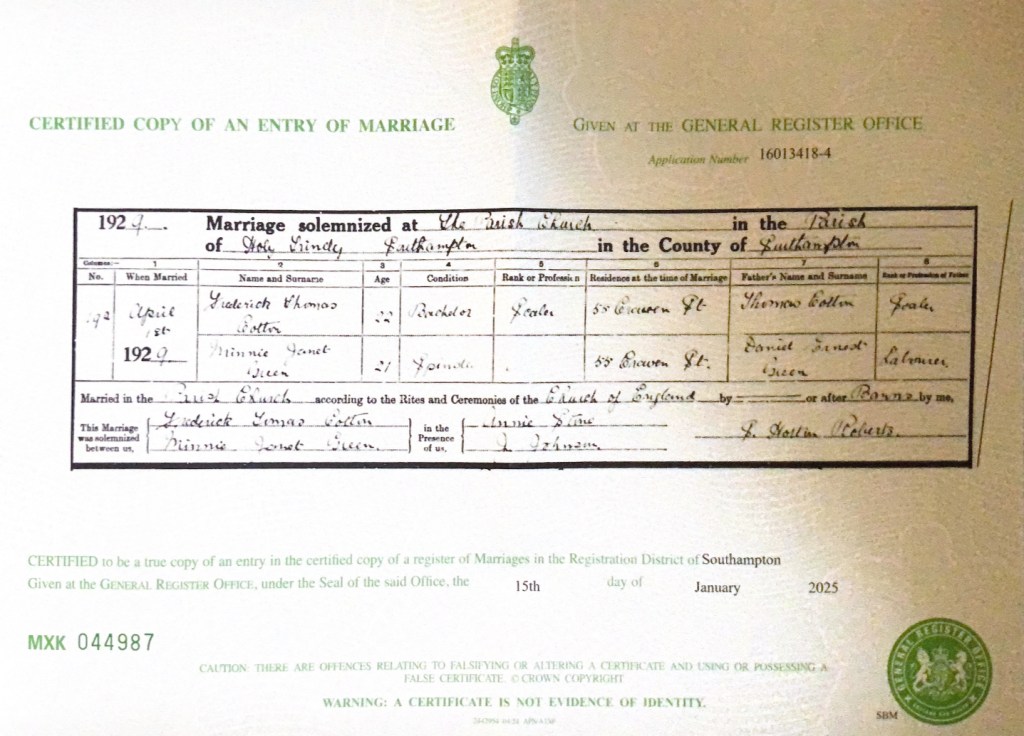 CERTIFIED COPY OF AN ENTRY OF MARRIAGE
GIVEN AT THE GENERAL REGISTER OFFICE
Application Number 16013418-4
1929 Marriage solemnized at The Parish Church in the Parish
of Holy Trinity Southampton in the County of Southampton
Columns:— 1 2 3 4 5 6 7 8
No. When Married Name and Surname Age Condition Rank or Profession Residence at the time of Marriage Father's Name and Surname Rank or Profession of Father
192 April 1st 1929
Frederick Thomas Cotton 22 Bachelor 55 Craven St. Thomas Cotton
Minnie Janet Green 21 Spinster 55 Craven St. Daniel Ernest Green Labourer
Married in the Parish Church according to the Rites and Ceremonies of the Church of England by or after Banns by me,
This Marriage was solemnized between us, Frederick Tomas Cotton Minnie Janet Green in the Presence of us, Annie Stone J Johnson Roberts.
CERTIFIED to be a true copy of an entry in the certified copy of a register of Marriages in the Registration District of Southampton
Given at the GENERAL REGISTER OFFICE, under the Seal of the said Office, the 15th day of January 2025
MXK 044987
CAUTION: THERE ARE OFFENCES RELATING TO FALSIFYING OR ALTERING A CERTIFICATE AND USING OR POSSESSING A
FALSE CERTIFICATE. © CROWN COPYRIGHT
WARNING: A CERTIFICATE IS NOT EVIDENCE OF IDENTITY.
GENERAL REGISTER OFFICE
SBM